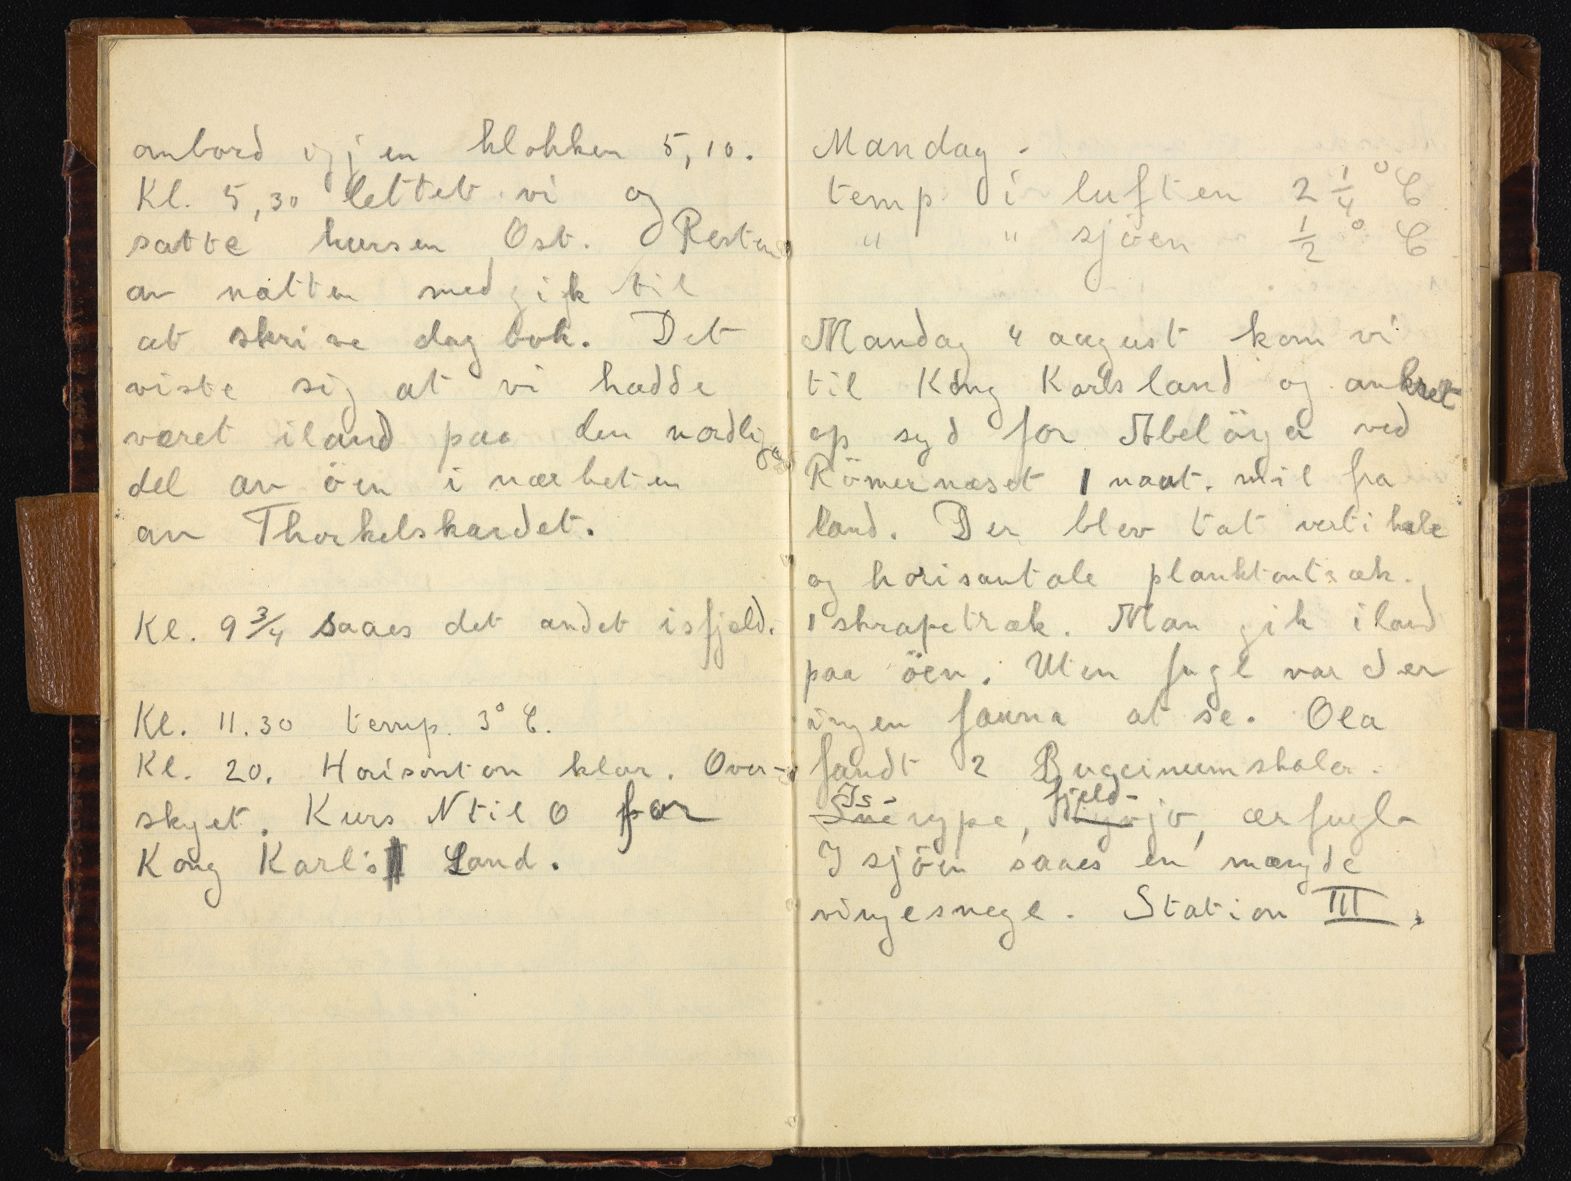 ombord igjen klokken 5,10.
Kl. 5,30 lettet vi og
satte kursen Ost. Resten
av natten medgik til
at skrive dagbok. Det
viste sig at vi hadde
været iland paa den nordlige
del av öen i nærheten
av Thorkelskardet.
Kl. 9 3/4 saaes det andet isfjeld.
Kl. 11.30 temp. 3° C.
Kl. 20. Horisonten klar. Over-
skyet. Kurs N til O for
Kong Karl's Land.
Mandag.
temp. i luften 2 1/4° C
" " sjöen 1/2° C
Mandag 4 august kom vi
til Kong Karls land og ankret
op syd for Abelöya ved
Römernæset 1 naut. mil fra
land. Der blev tat vertikale
og horisontale planktontræk.
1 skrapetræk. Man gik iland
paa öen. Uten fugl var der
ingen fauna at se. Ola
fandt 2 Buccinumskaler.
Is- fjeld-
Sne rype, jo, ærfugl
I sjöen saaes en mængde
vingesnegl. Station III.